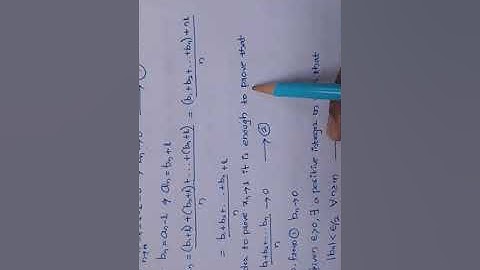 bn = an-l ⇒ an = bn+l
n = (b1+l)+(b2+l)+...+(bn+l) / n = (b1+b2+...+bn)+nl / n
= b1+b2+...+bn / n + l
to prove xn→l it is enough to prove that
b1+b2+...bn / n → 0 → ②
from ① bn→0
given ε>0, ∃ a positive integer that
|bn| < ε/2 ∀ n≥m